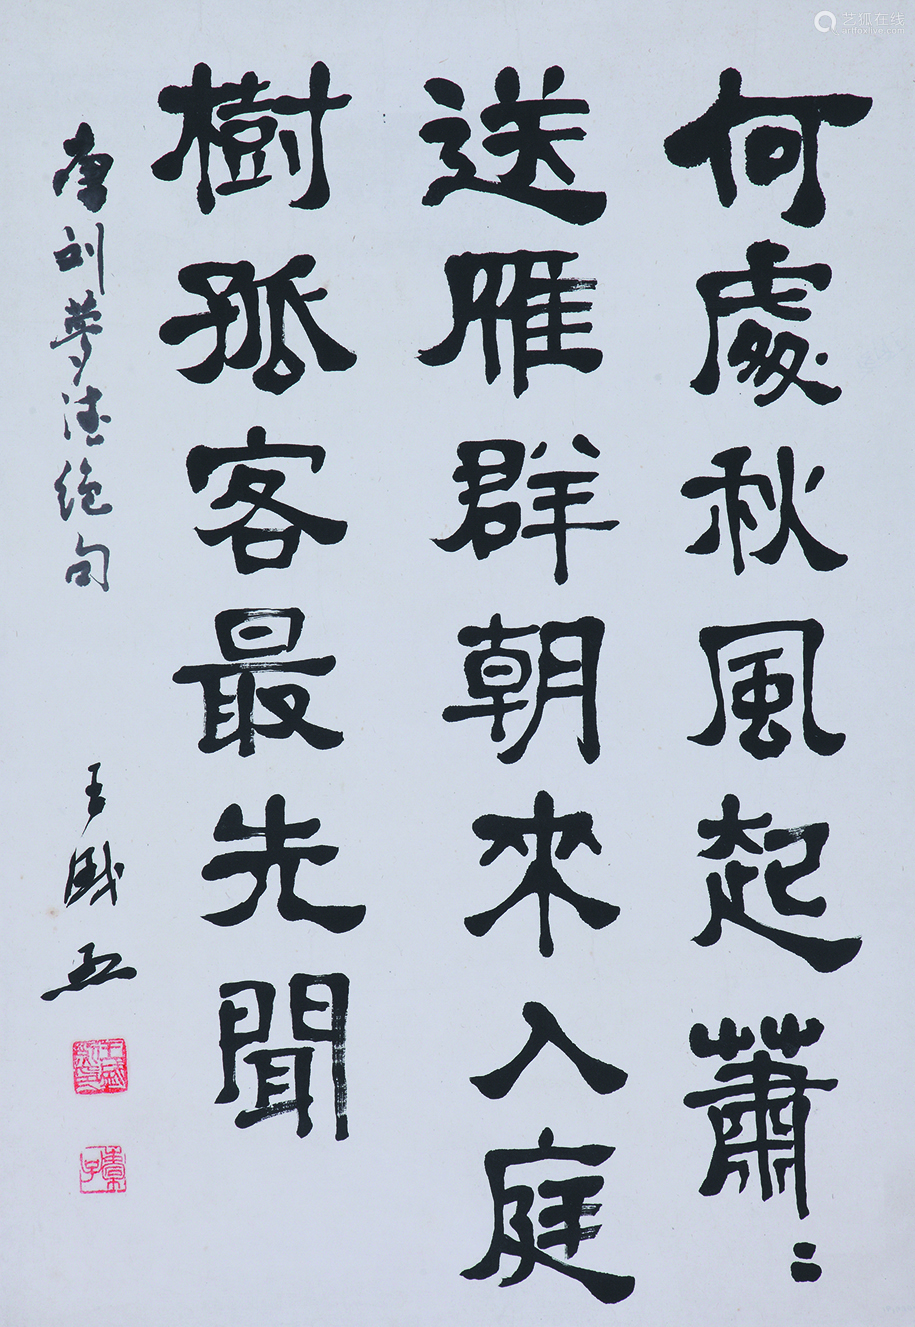 何處秋風起蕭〻
送雁群朝來入庭
樹孤客最先聞
唐刘夢得绝句
王盛烈
艺狐在线
artfoxlive.com